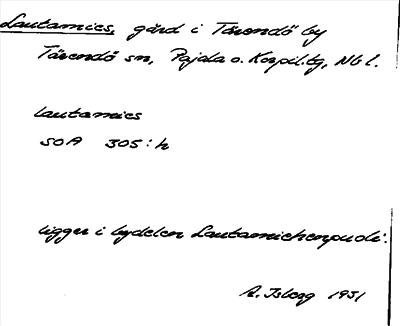 Lautamics, gård i Tärendö by
Tärendö sn, Pajala o. Korpil. tg, Nb l.
lautamics
SOA 305:h
ligger i bydelen Lautamichenpuoli.
A. Isberg 1931